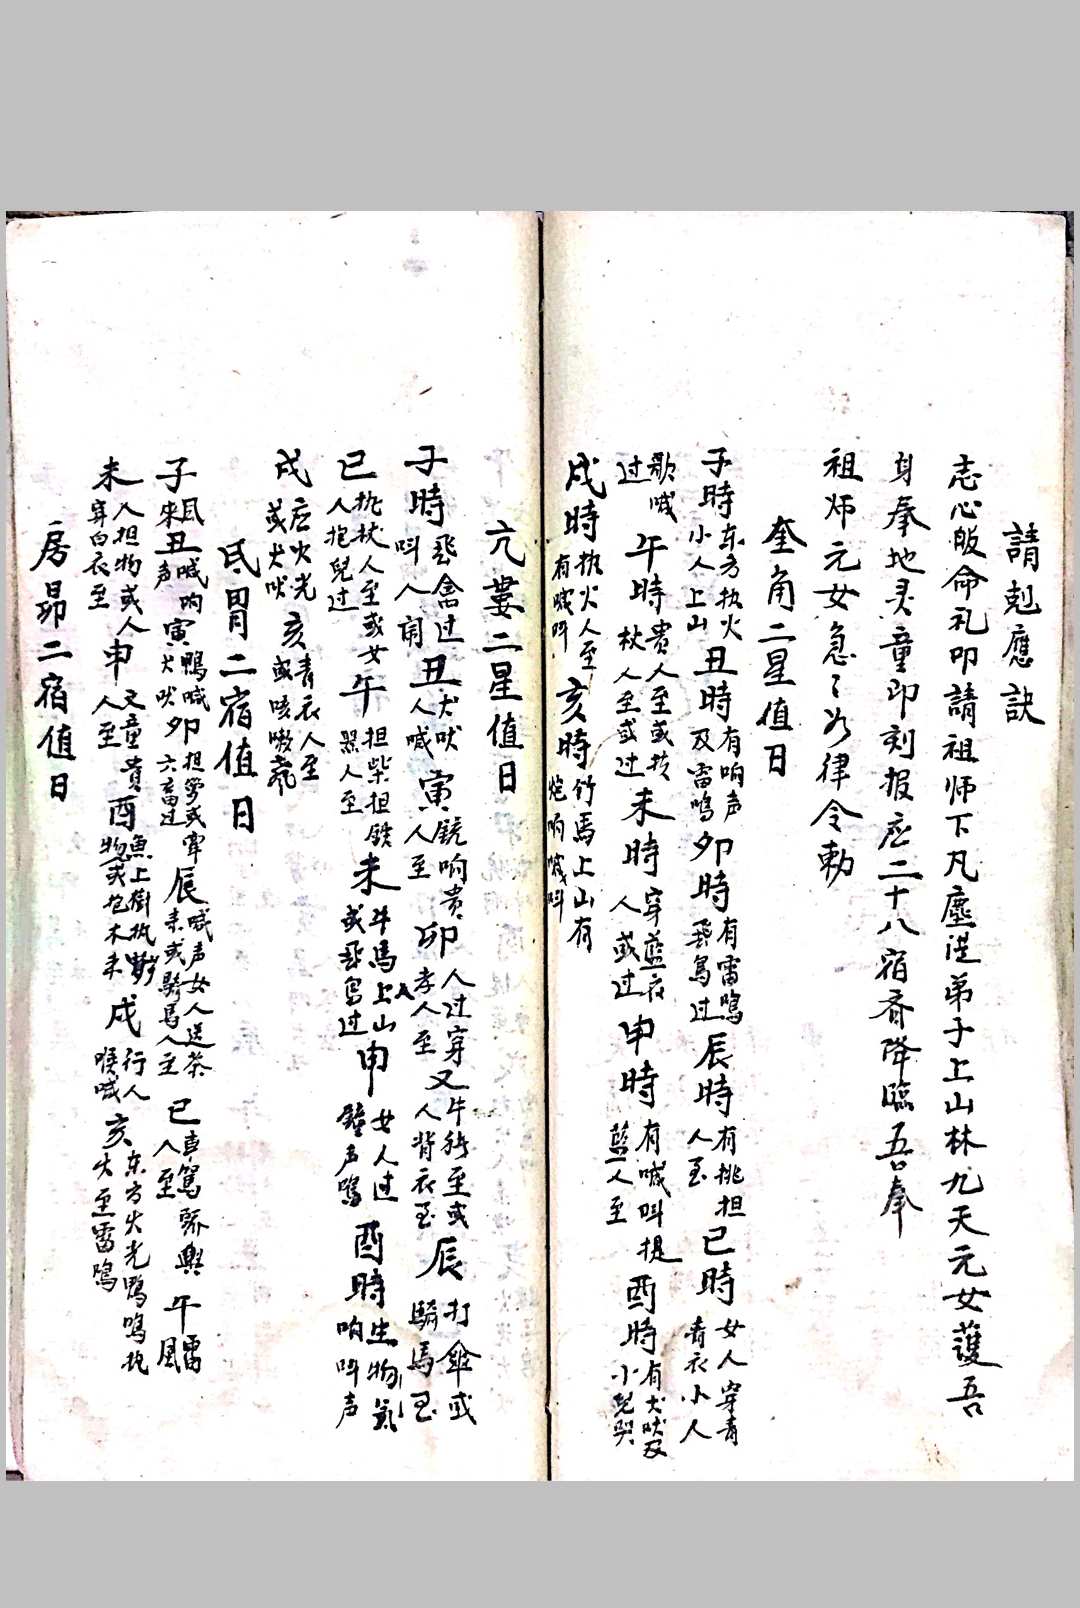 請尅應訣
志心皈命礼叩請祖师下凡塵送弟子上山林九天元女護吾
身奉地灵童即刻报应二十八宿齐降臨吾奉
祖师元女急々如律令勅
奎角二星值日
子時东方执火小人上山丑時有响声及雷鸣卯時有雷鸣飛鳥过辰時有挑担人至巳時女人穿青青衣小人
歌喊过午時贵人至或扶杖人至或过未時穿蓝衣人或过申時有喊叫提蓝人至酉時有犬吠及小兒哭
戍時执火人至有喊叫亥時竹馬上山有炮响喊叫
亢婁二星值日
子時飛禽过叫人闹丑犬吠人喊寅鏡响贵人至卯人过穿孝人至又牛羊至或人背衣至辰打傘或騎馬至
巳执杖人至或女人抱兒过午担柴担鐵黑人至未牛馬上山或飛鸟过申女人过鐘声鸣酉時生物氣响叫声
戍应火光或犬吠亥青衣人至或咳嗽
氐胃二宿值日
子風来丑喊响声寅鴨喊犬吠卯担箩或牽六畜过辰喊声女人送茶来或騎馬人至巳車駕轎輿人至午雷風
未人担物或人穿白衣至申又童貴人至酉魚上樹执物或抱木来戍行人喉喊亥东方火光鴨鸣执火至雷鸣
房昴二宿值日